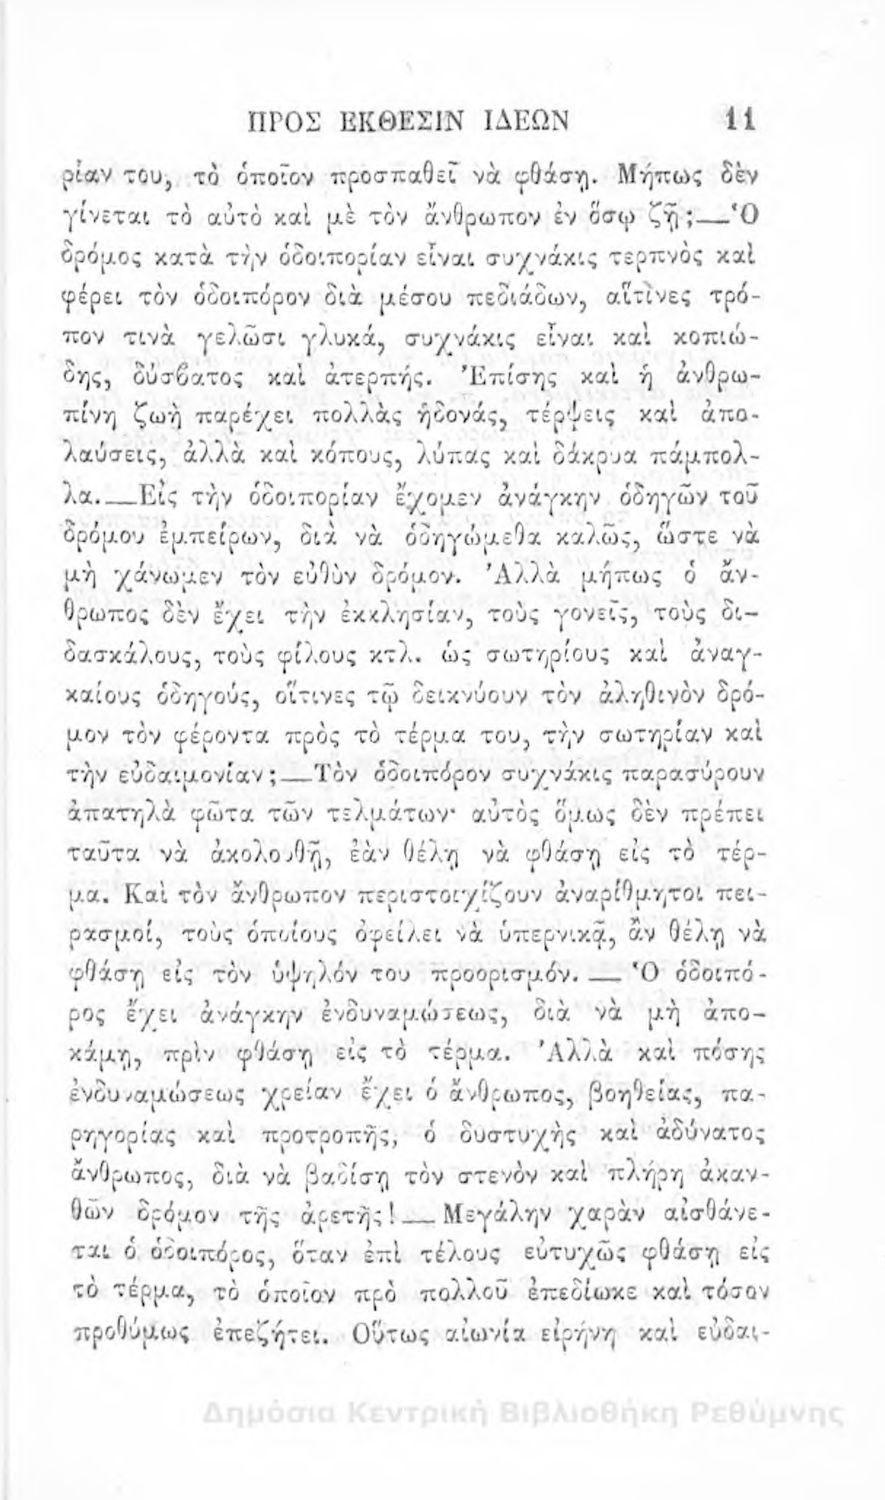 ΠΡΟΣ ΕΚΘΕΣΙΝ ΙΔΕΩΝ 11
ρίαν του, τὸ ὁποῖον προσπαθεῖ νὰ φθάσῃ. Μήπως δὲν
γίνεται τὸ αὐτὸ καὶ μὲ τὸν ἄνθρωπον ἐν ὅσῳ ζῇ ;—Ὁ
δρόμος κατὰ τὴν ὁδοιπορίαν εἶναι συχνάκις τερπνὸς καὶ
φέρει τὸν ὁδοιπόρον διὰ μέσου πεδιάδων, αἵτινες τρό-
πον τινὰ γελῶσι γλυκά, συχνάκις εἶναι καὶ κοπιώ-
δης, δύσβατος καὶ ἀτερπής. Ἐπίσης καὶ ἡ ἀνθρω-
πίνη ζωὴ παρέχει πολλὰς ἡδονάς, τέρψεις καὶ ἀπο-
λαύσεις, ἀλλὰ καὶ κόπους, λύπας καὶ δάκρυα πάμπολ-
λα.—Εἰς τὴν ὁδοιπορίαν ἔχομεν ἀνάγκην ὁδηγῶν τοῦ
δρόμου ἐμπείρων, διὰ νὰ ὁδηγώμεθα καλῶς, ὥστε νὰ
μὴ χάνωμεν τὸν εὐθὺν δρόμον. Ἀλλὰ μήπως ὁ ἄν-
θρωπος δὲν ἔχει τὴν ἐκκλησίαν, τοὺς γονεῖς, τοὺς δι-
δασκάλους, τοὺς φίλους κτλ. ὡς σωτηρίους καὶ ἀναγ-
καίους ὁδηγούς, οἵτινες τῷ δεικνύουν τὸν ἀληθινὸν δρό-
μον τὸν φέροντα πρὸς τὸ τέρμα του, τὴν σωτηρίαν καὶ
τὴν εὐδαιμονίαν ;—Τὸν ὁδοιπόρον συχνάκις παρασύρουν
ἀπατηλὰ φῶτα τῶν τελμάτων· αὐτὸς ὅμως δὲν πρέπει
ταῦτα νὰ ἀκολουθῇ, ἐὰν θέλῃ νὰ φθάσῃ εἰς τὸ τέρ-
μα. Καὶ τὸν ἄνθρωπον περιστοιχίζουν ἀναρίθμητοι πει-
ρασμοί, τοὺς ὁποίους ὀφείλει νὰ ὑπερνικᾷ, ἂν θέλῃ νὰ
φθάσῃ εἰς τὸν ὑψηλόν του προορισμόν. — Ὁ ὁδοιπό-
ρος ἔχει ἀνάγκην ἐνδυναμώσεως, διὰ νὰ μὴ ἀπο-
κάμῃ, πρὶν φθάσῃ εἰς τὸ τέρμα. Ἀλλὰ καὶ πόσης
ἐνδυναμώσεως χρείαν ἔχει ὁ ἄνθρωπος, βοηθείας, πα-
ρηγορίας καὶ προτροπῆς, ὁ δυστυχὴς καὶ ἀδύνατος
ἄνθρωπος, διὰ νὰ βαδίσῃ τὸν στενὸν καὶ πλήρη ἀκαν-
θῶν δρόμον τῆς ἀρετῆς ! — Μεγάλην χαρὰν αἰσθάνε-
ται ὁ ὁδοιπόρος, ὅταν ἐπὶ τέλους εὐτυχῶς φθάσῃ εἰς
τὸ τέρμα, τὸ ὁποῖον πρὸ πολλοῦ ἐπεδίωκε καὶ τόσον
προθύμως ἐπεζήτει. Οὕτως αἰωνία εἰρήνη καὶ εὐδαι-
Δημόσια Κεντρική Βιβλιοθήκη Ρεθύμνης